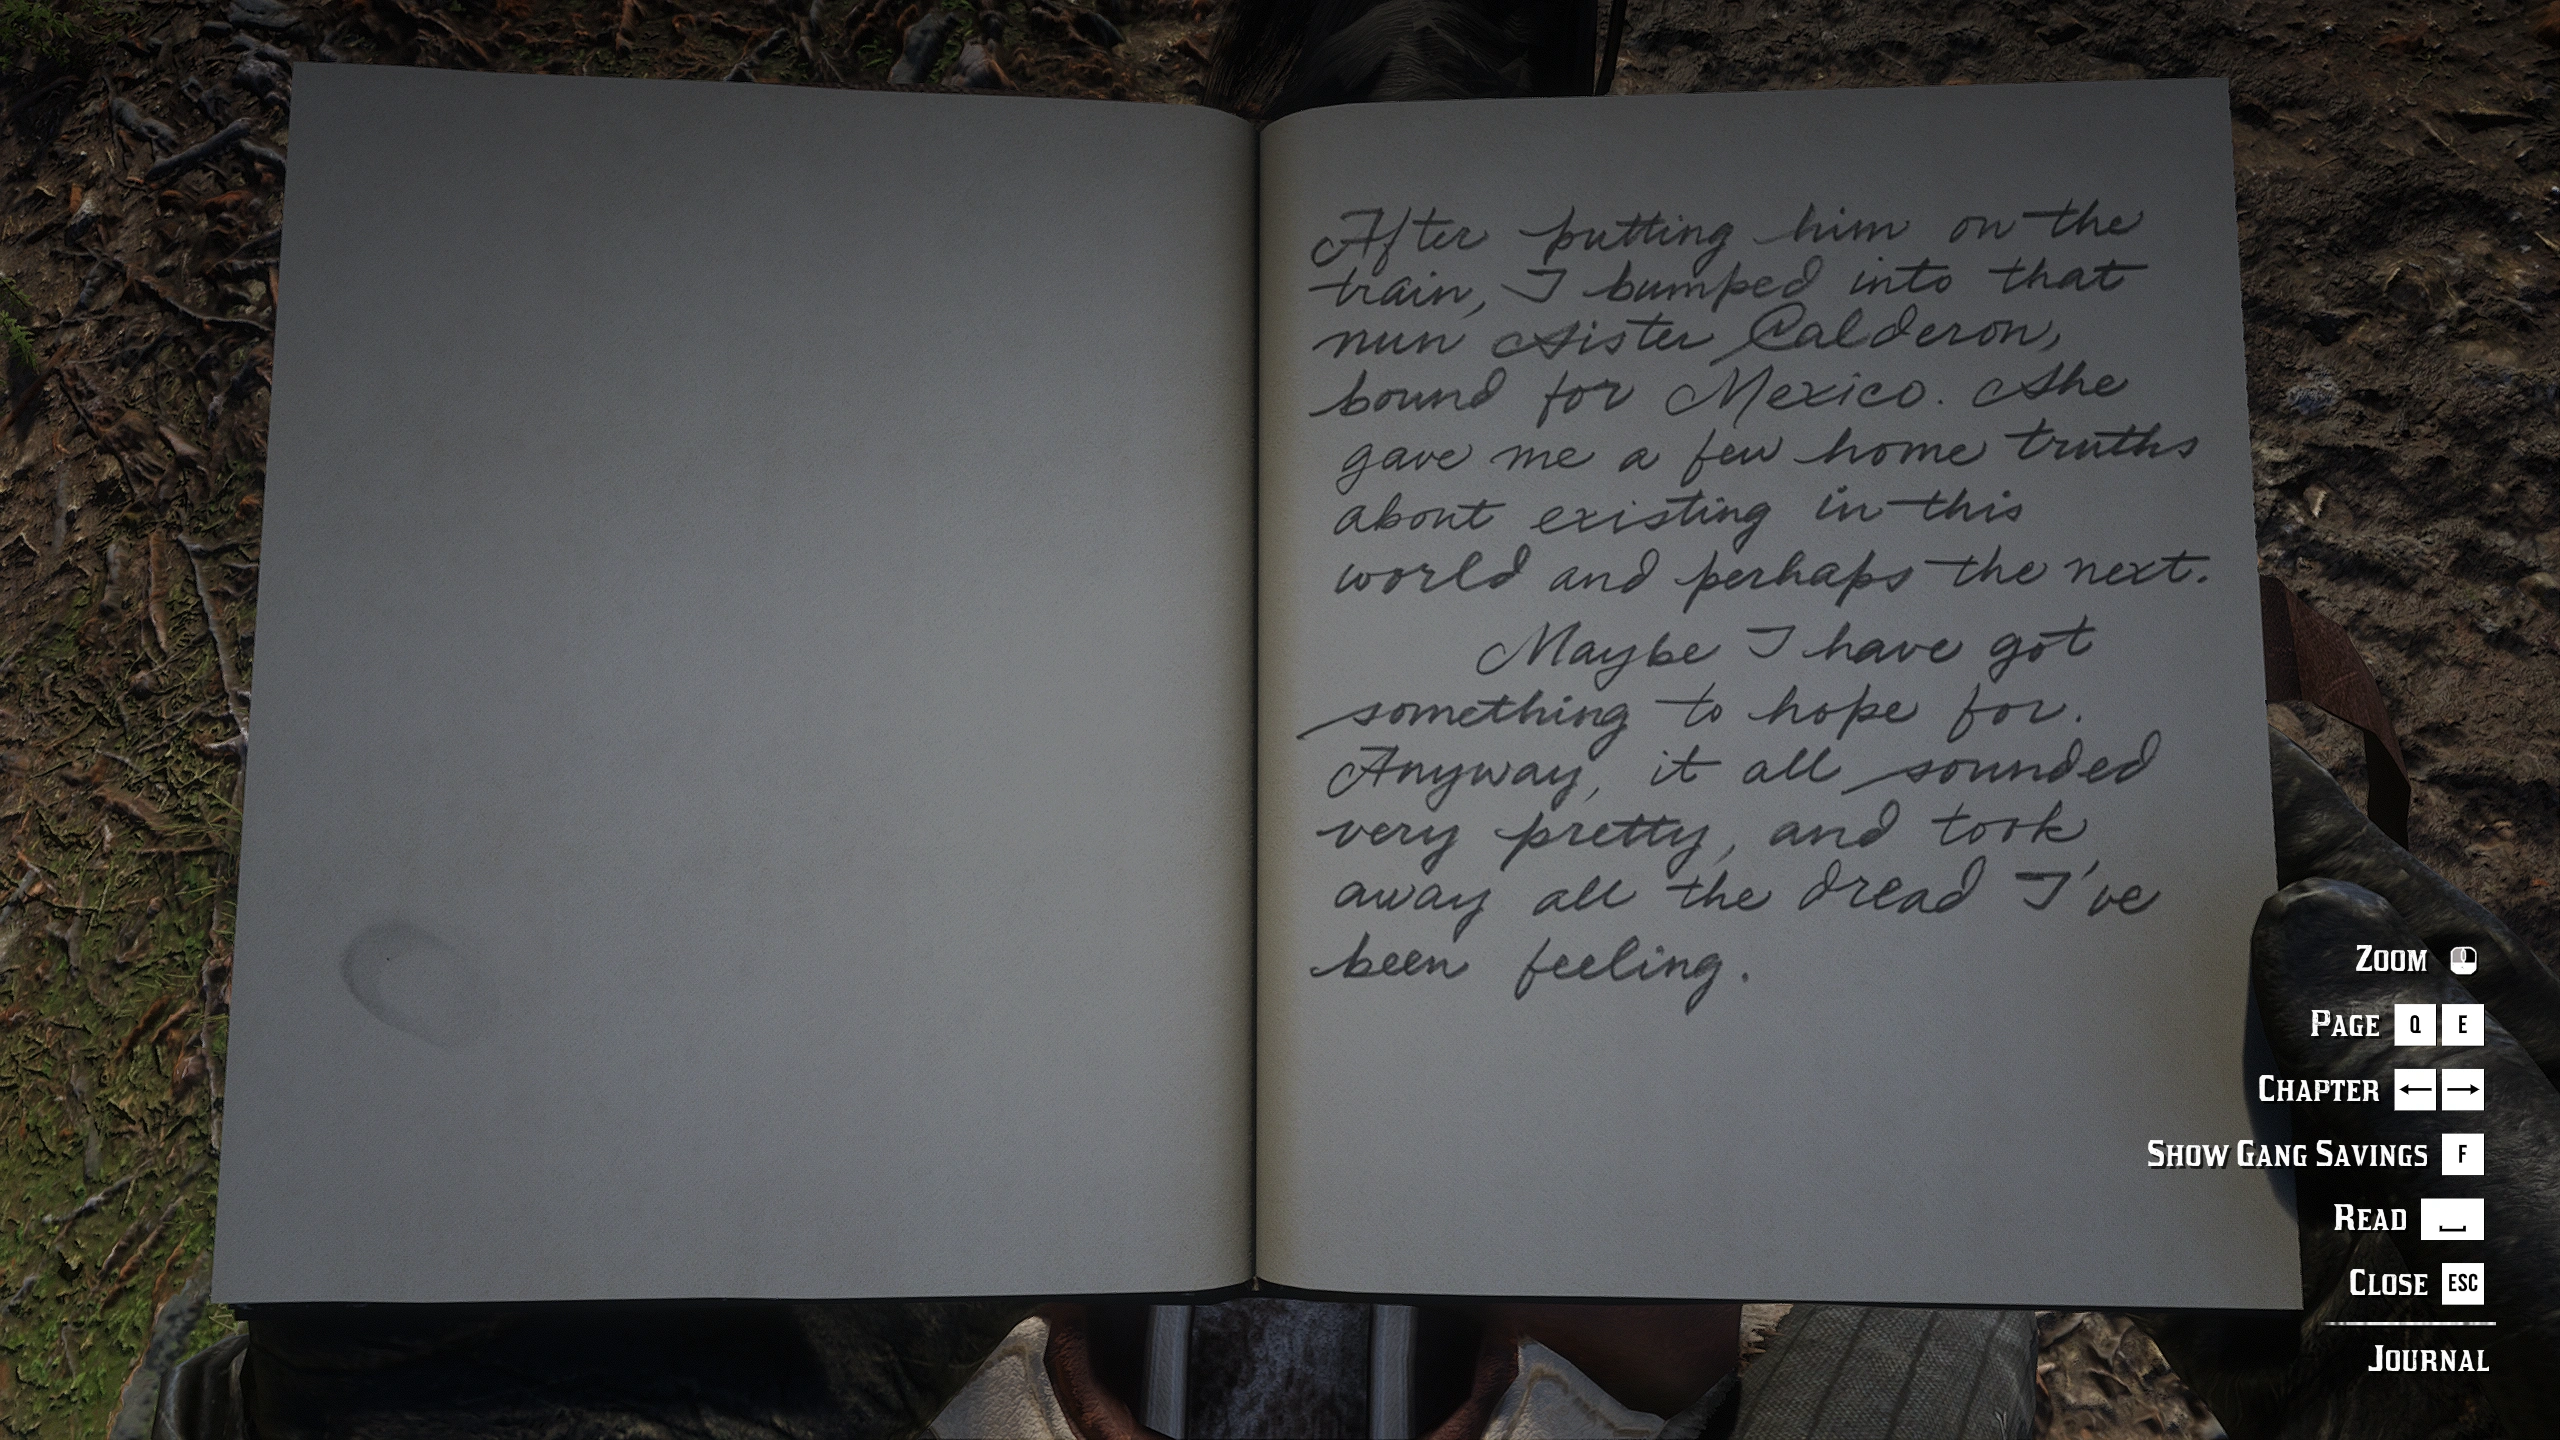 After putting him on the
train, I bumped into that
nun Sister Calderon,
bound for Mexico. She
gave me a few home truths
about existing in this
world and perhaps the next.
Maybe I have got
something to hope for.
Anyway, it all sounded
very pretty, and took
away all the dread I've
been feeling.
ZOOM
PAGE Q E
CHAPTER ← →
SHOW GANG SAVINGS F
READ
CLOSE ESC
JOURNAL